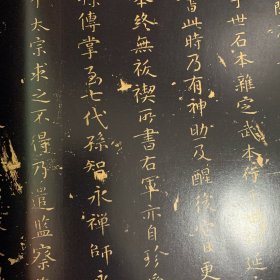 于世石本雜定武本行
當此時乃有神助及醒後它日更
本終無祓禊所書右軍亦自珍愛
孫傳掌至七代孫智永禪師永
太宗求之不得乃遣監察